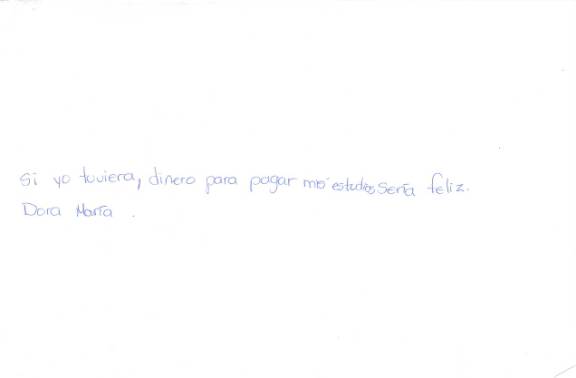 Si yo tuviera, dinero para pagar mis estudios sería feliz.
Dora María .